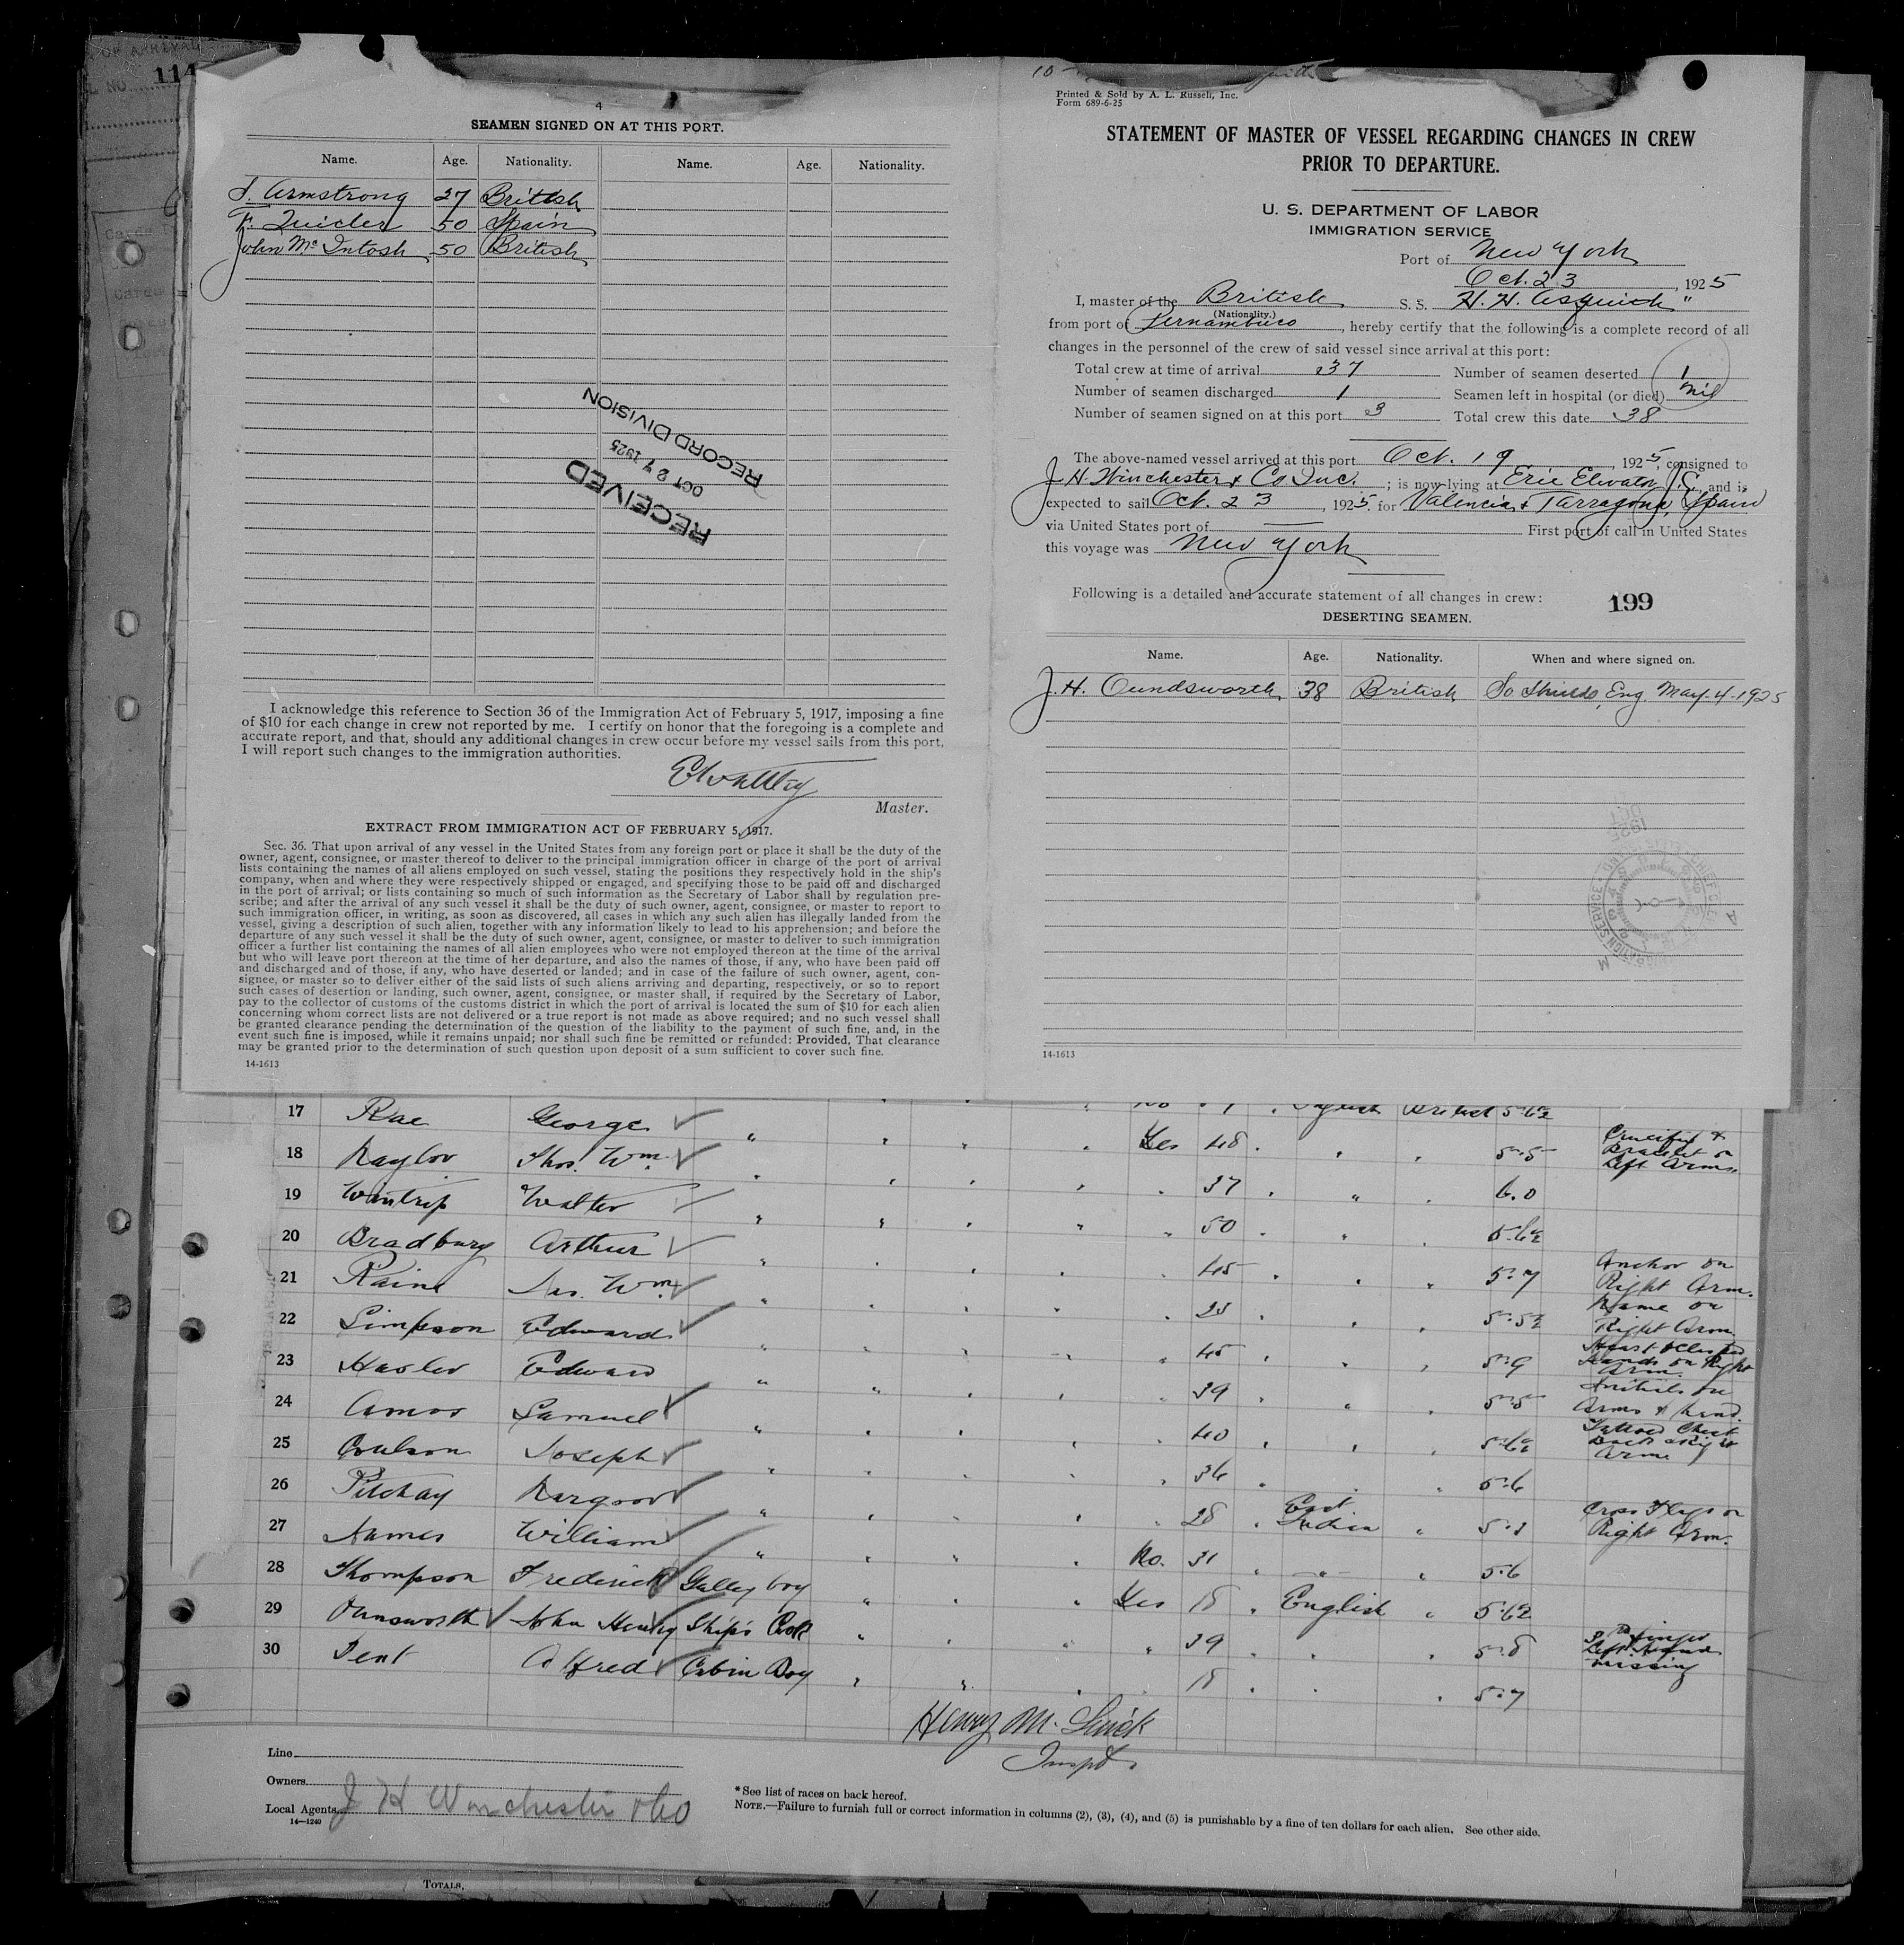 OF ARRIVAL
NO. 114
4
SEAMEN SIGNED ON AT THIS PORT.
Name. Age. Nationality. Name. Age. Nationality.
Armstrong 27 British
50 Spain
John McIntosh 50 British
RECEIVED
OCT 27 1925
RECORD DIVISION
I acknowledge this reference to Section 36 of the Immigration Act of February 5, 1917, imposing a fine
of $10 for each change in crew not reported by me. I certify on honor that the foregoing is a complete and
accurate report, and that, should any additional changes in crew occur before my vessel sails from this port,
I will report such changes to the immigration authorities.
Master.
EXTRACT FROM IMMIGRATION ACT OF FEBRUARY 5, 1917.
Sec. 36. That upon arrival of any vessel in the United States from any foreign port or place it shall be the duty of the
owner, agent, consignee, or master thereof to deliver to the principal immigration officer in charge of the port of arrival
lists containing the names of all aliens employed on such vessel, stating the positions they respectively hold in the ship's
company, when and where they were respectively shipped or engaged, and specifying those to be paid off and discharged
in the port of arrival; or lists containing so much of such information as the Secretary of Labor shall by regulation pre-
scribe; and after the arrival of any such vessel it shall be the duty of such owner, agent, consignee, or master to report to
such immigration officer, in writing, as soon as discovered, all cases in which any such alien has illegally landed from the
vessel, giving a description of such alien, together with any information likely to lead to his apprehension; and before the
departure of any such vessel it shall be the duty of such owner, agent, consignee, or master to deliver to such immigration
officer a further list containing the names of all alien employees who were not employed thereon at the time of the arrival
but who will leave port thereon at the time of her departure, and also the names of those, if any, who have been paid off
and discharged and of those, if any, who have deserted or landed; and in case of the failure of such owner, agent, con-
signee, or master so to deliver either of the said lists of such aliens arriving and departing, respectively, or so to report
such cases of desertion or landing, such owner, agent, consignee, or master shall, if required by the Secretary of Labor,
pay to the collector of customs of the customs district in which the port of arrival is located the sum of $10 for each alien
concerning whom correct lists are not delivered or a true report is not made as above required; and no such vessel shall
be granted clearance pending the determination of the question of the liability to the payment of such fine, and, in the
event such fine is imposed, while it remains unpaid; nor shall such fine be remitted or refunded: Provided, That clearance
may be granted prior to the determination of such question upon deposit of a sum sufficient to cover such fine.
14-1613
Printed & Sold by A. L. Russell, Inc.
Form 689-6-25
STATEMENT OF MASTER OF VESSEL REGARDING CHANGES IN CREW
PRIOR TO DEPARTURE.
U. S. DEPARTMENT OF LABOR
IMMIGRATION SERVICE
Port of New York
Oct. 23, 1925
I, master of the British S. S. H. H. Asquith "
(Nationality.)
from port of Pernambuco, hereby certify that the following is a complete record of all
changes in the personnel of the crew of said vessel since arrival at this port:
Total crew at time of arrival 37 Number of seamen deserted 1
Number of seamen discharged 1 Seamen left in hospital (or died) Nil
Number of seamen signed on at this port 3 Total crew this date 38
The above-named vessel arrived at this port Oct. 19, 1925, consigned to
J. H. Winchester & Co Inc. ; is now lying at Erie Elvator J.C. and is
expected to sail Oct. 23, 1925. for Valencia & Tarragona, Spain
via United States port of First port of call in United States
this voyage was New York
Following is a detailed and accurate statement of all changes in crew: 199
DESERTING SEAMEN.
Name. Age. Nationality. When and where signed on.
J. H. Oundsworth 38 British So Shields, Eng. May-4-1925
14-1613
17 Rae George British 5-6½
18 Naylor Thos. Wm. " Yes 48 5-5 Crucifix & Bracelet on Left Arm.
19 Wintrip Walter 37 " 6.0
20 Bradbury Arthur " 50 5-6½
21 Raine Jas. Wm. 45 5-7 Anchor on Right Arm.
22 Simpson Edward 5-5½ Name on Right Arm.
23 Hasler Edward 45 5-9 Hands on Right Arm.
24 Amos Samuel " 39 5-5 Initials on Arms & hand.
25 Coulson Joseph 40 5-6½ Tattoed Chest Back & Right Arm
26 Pitchay 36 5-6
27 James William 28 East India 5-3 Cross Flags on Right Arm.
28 Thompson Frederick Galley boy No. 31 5-6
29 Ounsworth John Henry Ship's Cook Yes 18 English 5-6½
30 Dent Alfred Cabin Boy 39 5-8 Left Hand missing
18 5-7
Henry M.
Inspt.
Line
Owners
Local Agents J H Winchester & Co
14—1240
*See list of races on back hereof.
NOTE.—Failure to furnish full or correct information in columns (2), (3), (4), and (5) is punishable by a fine of ten dollars for each alien. See other side.
TOTALS.